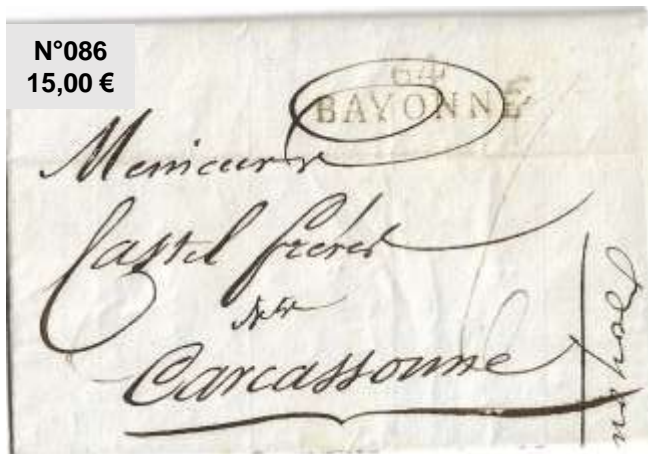 N°086
15,00 €
64
BAYONNE
Messieurs
Castel freres
Carcassonne